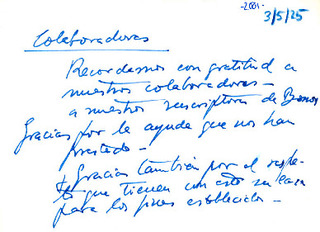 -2001-
3/5/25
Colaboradores
Recordamos con gratitud a
nuestros colaboradores -
a nuestros suscriptores de Bonos
Gracias por la ayuda que nos han
prestado -
Gracias también por el
que tienen con esto su casa
para los fines establecidos -